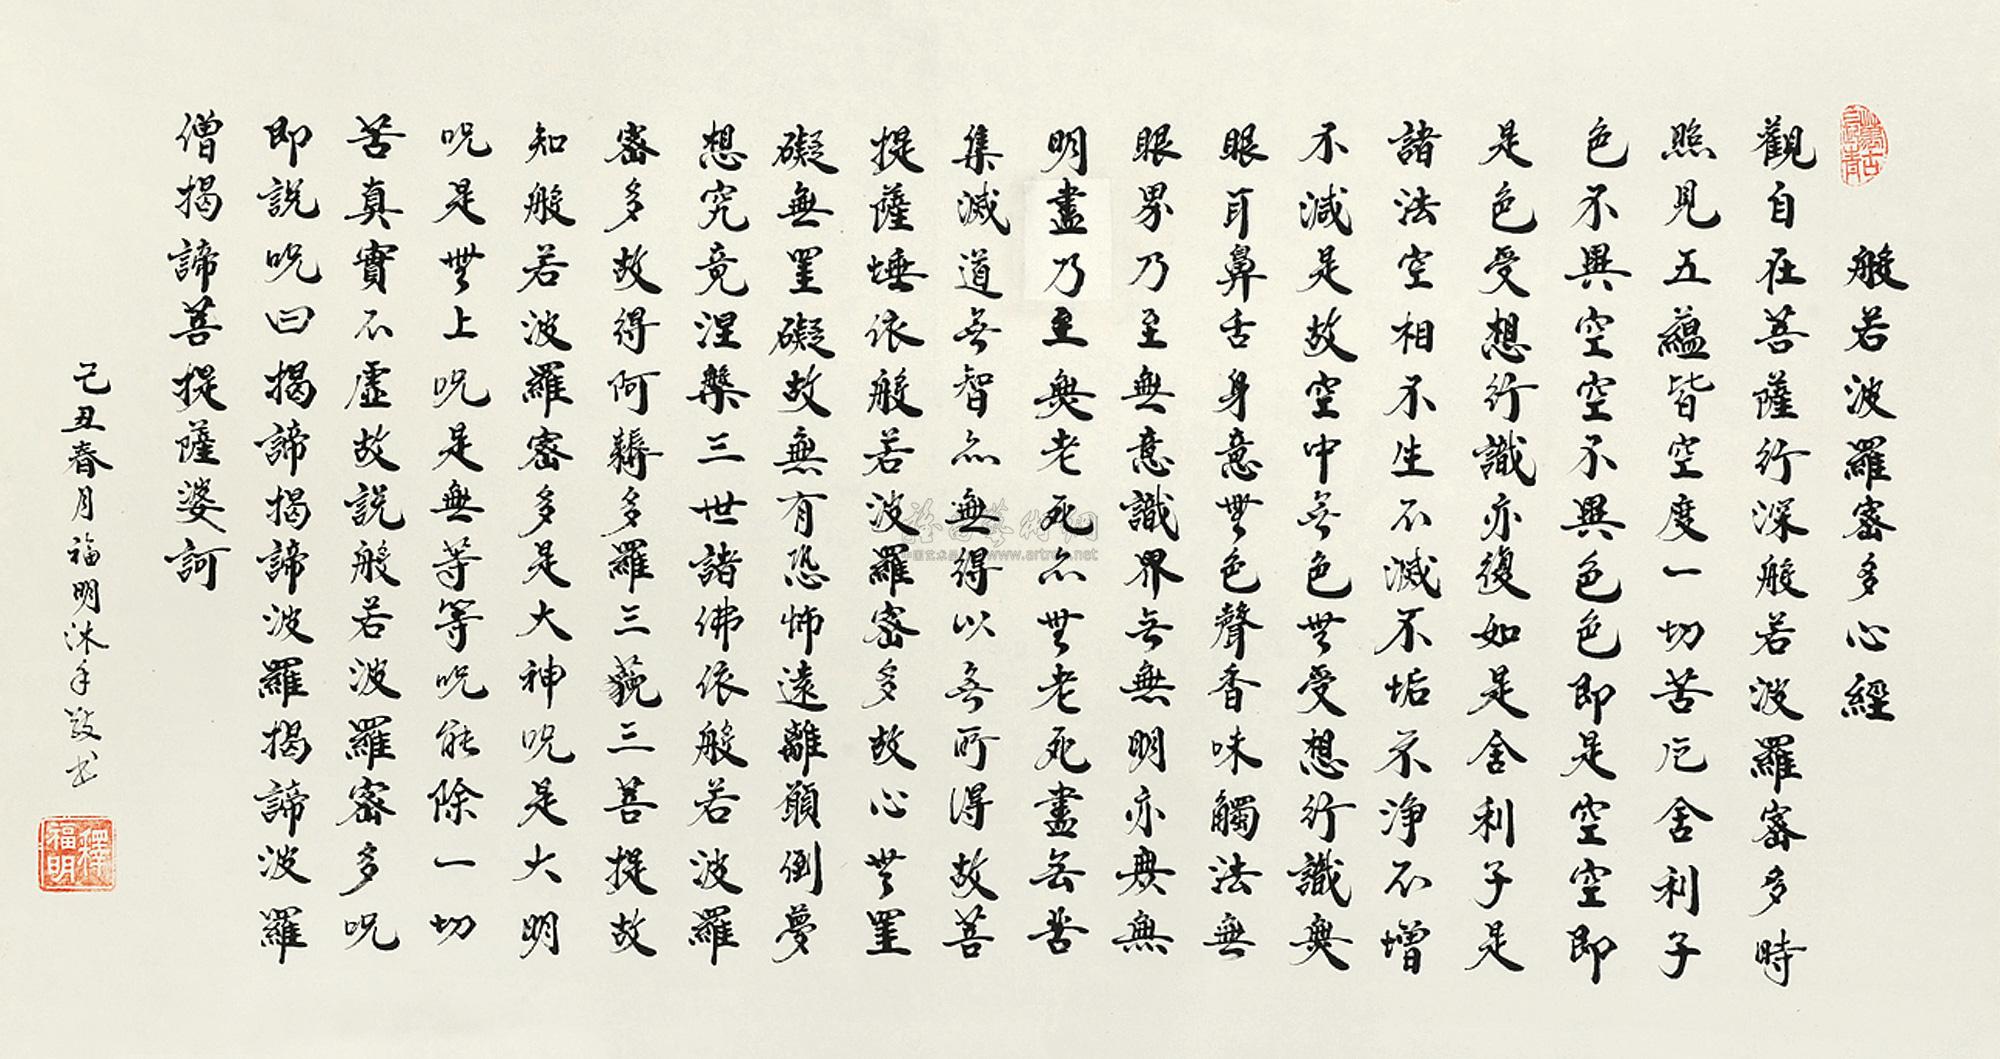 般若波羅密多心經
觀自在菩薩行深般若波羅密多時
照見五蘊皆空度一切苦厄舍利子
色不異空空不異色色即是空空即
是色受想行識亦復如是舍利子是
諸法空相不生不滅不垢不淨不增
不減是故空中無色無受想行識無
眼耳鼻舌身意無色聲香味觸法無
眼界乃至無意識界無無明亦無無
明盡乃至無老死亦無老死盡無苦
集滅道無智亦無得以無所得故菩
提薩埵依般若波羅密多故心無罣
礙無罣礙故無有恐怖遠離顛倒夢
想究竟涅槃三世諸佛依般若波羅
密多故得阿耨多羅三藐三菩提故
知般若波羅密多是大神呪是大明
呪是無上呪是無等等呪能除一切
苦真實不虛故說般若波羅密多呪
即說呪曰揭諦揭諦波羅揭諦波羅
僧揭諦菩提薩婆訶
己丑春月福明沐手敬书
釋福明
www.artron.net